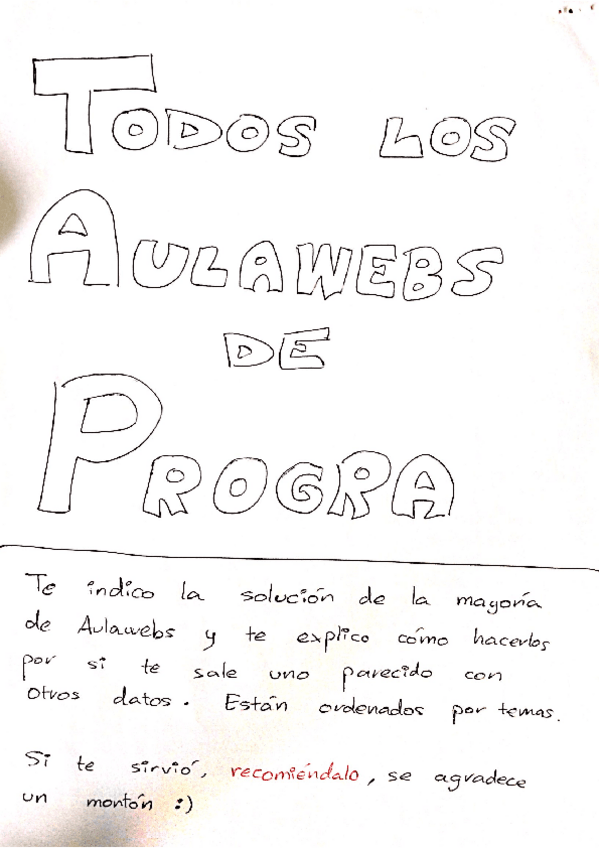 TODOS LOS
AULAWEBS
DE
PROGRA
Te indico la solución de la mayoría
de Aulawebs y te explico cómo hacerlos
por si te sale uno parecido con
otros datos. Están ordenados por temas.
Si te sirvió, recomiéndalo, se agradece
un montón :)